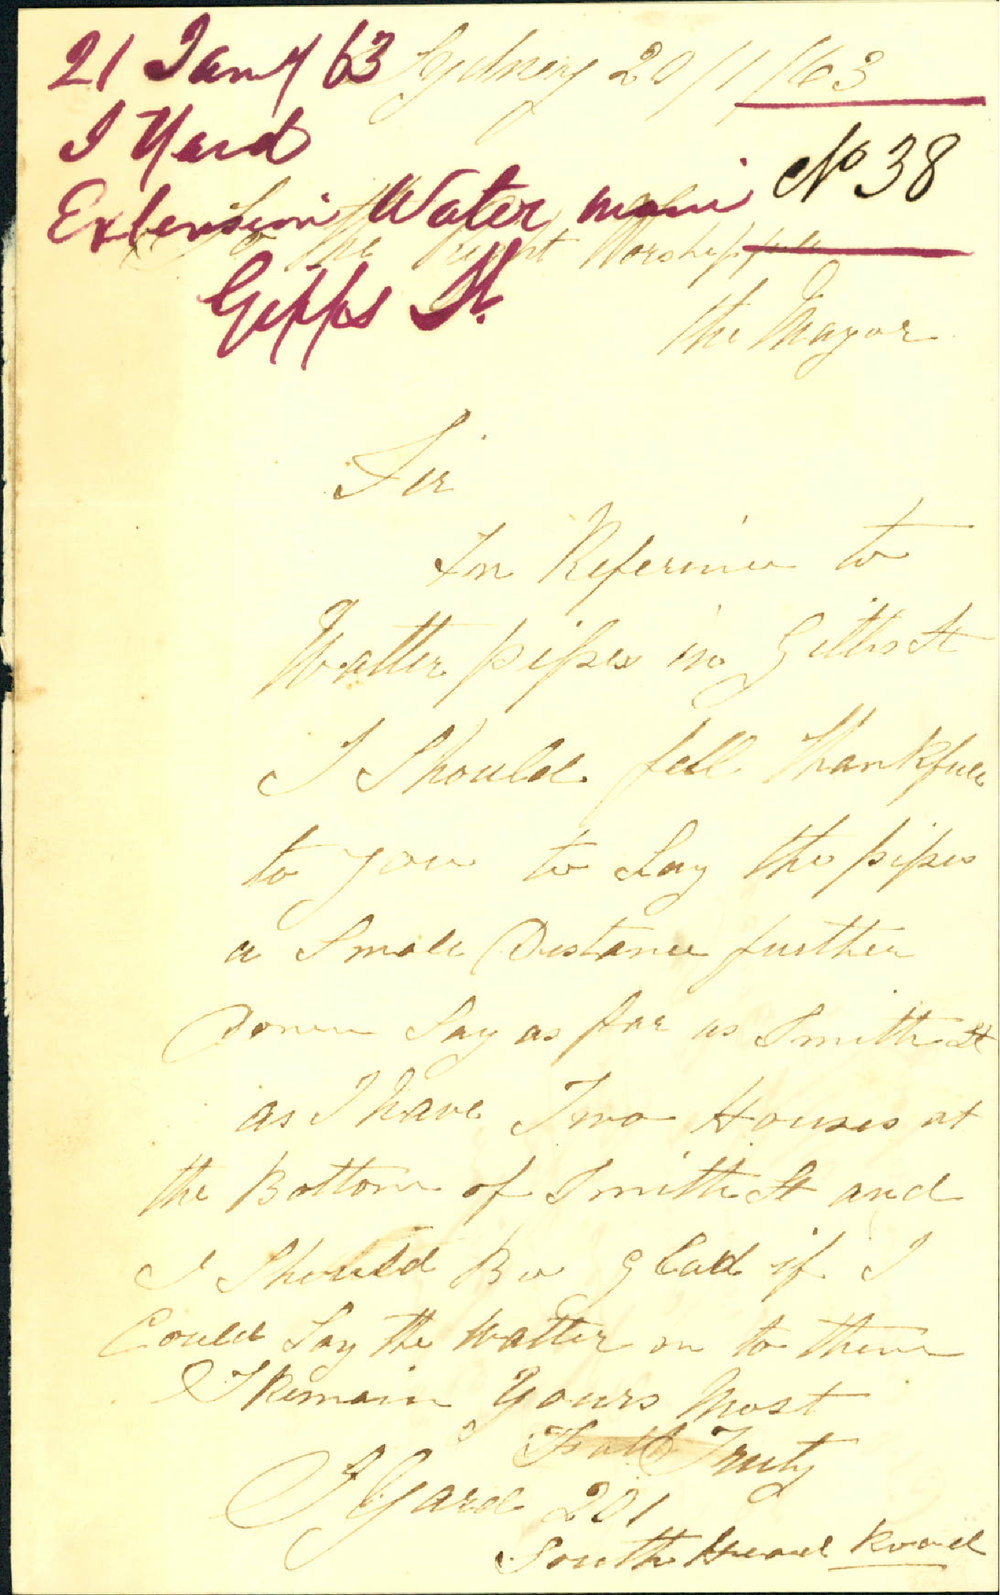 21 Jany/63
Sydney 20/1/63
J Yard
No 38
Extension Water main
Gipps St.
To the Right Worshipfull
the Mayor
Sir
In Referince to
Watter pipes in Gibbs St
I Should fell thankfull
to you to Lay the pipes
a Small Distance further
Down Say as far as Smith St
as I have Two Houses at
the Bottom of Smith St and
I Should Be glad if I
Could Lay the Watter on to them
I Remain Yours Most
Truly
J Yard 201
South Head Road